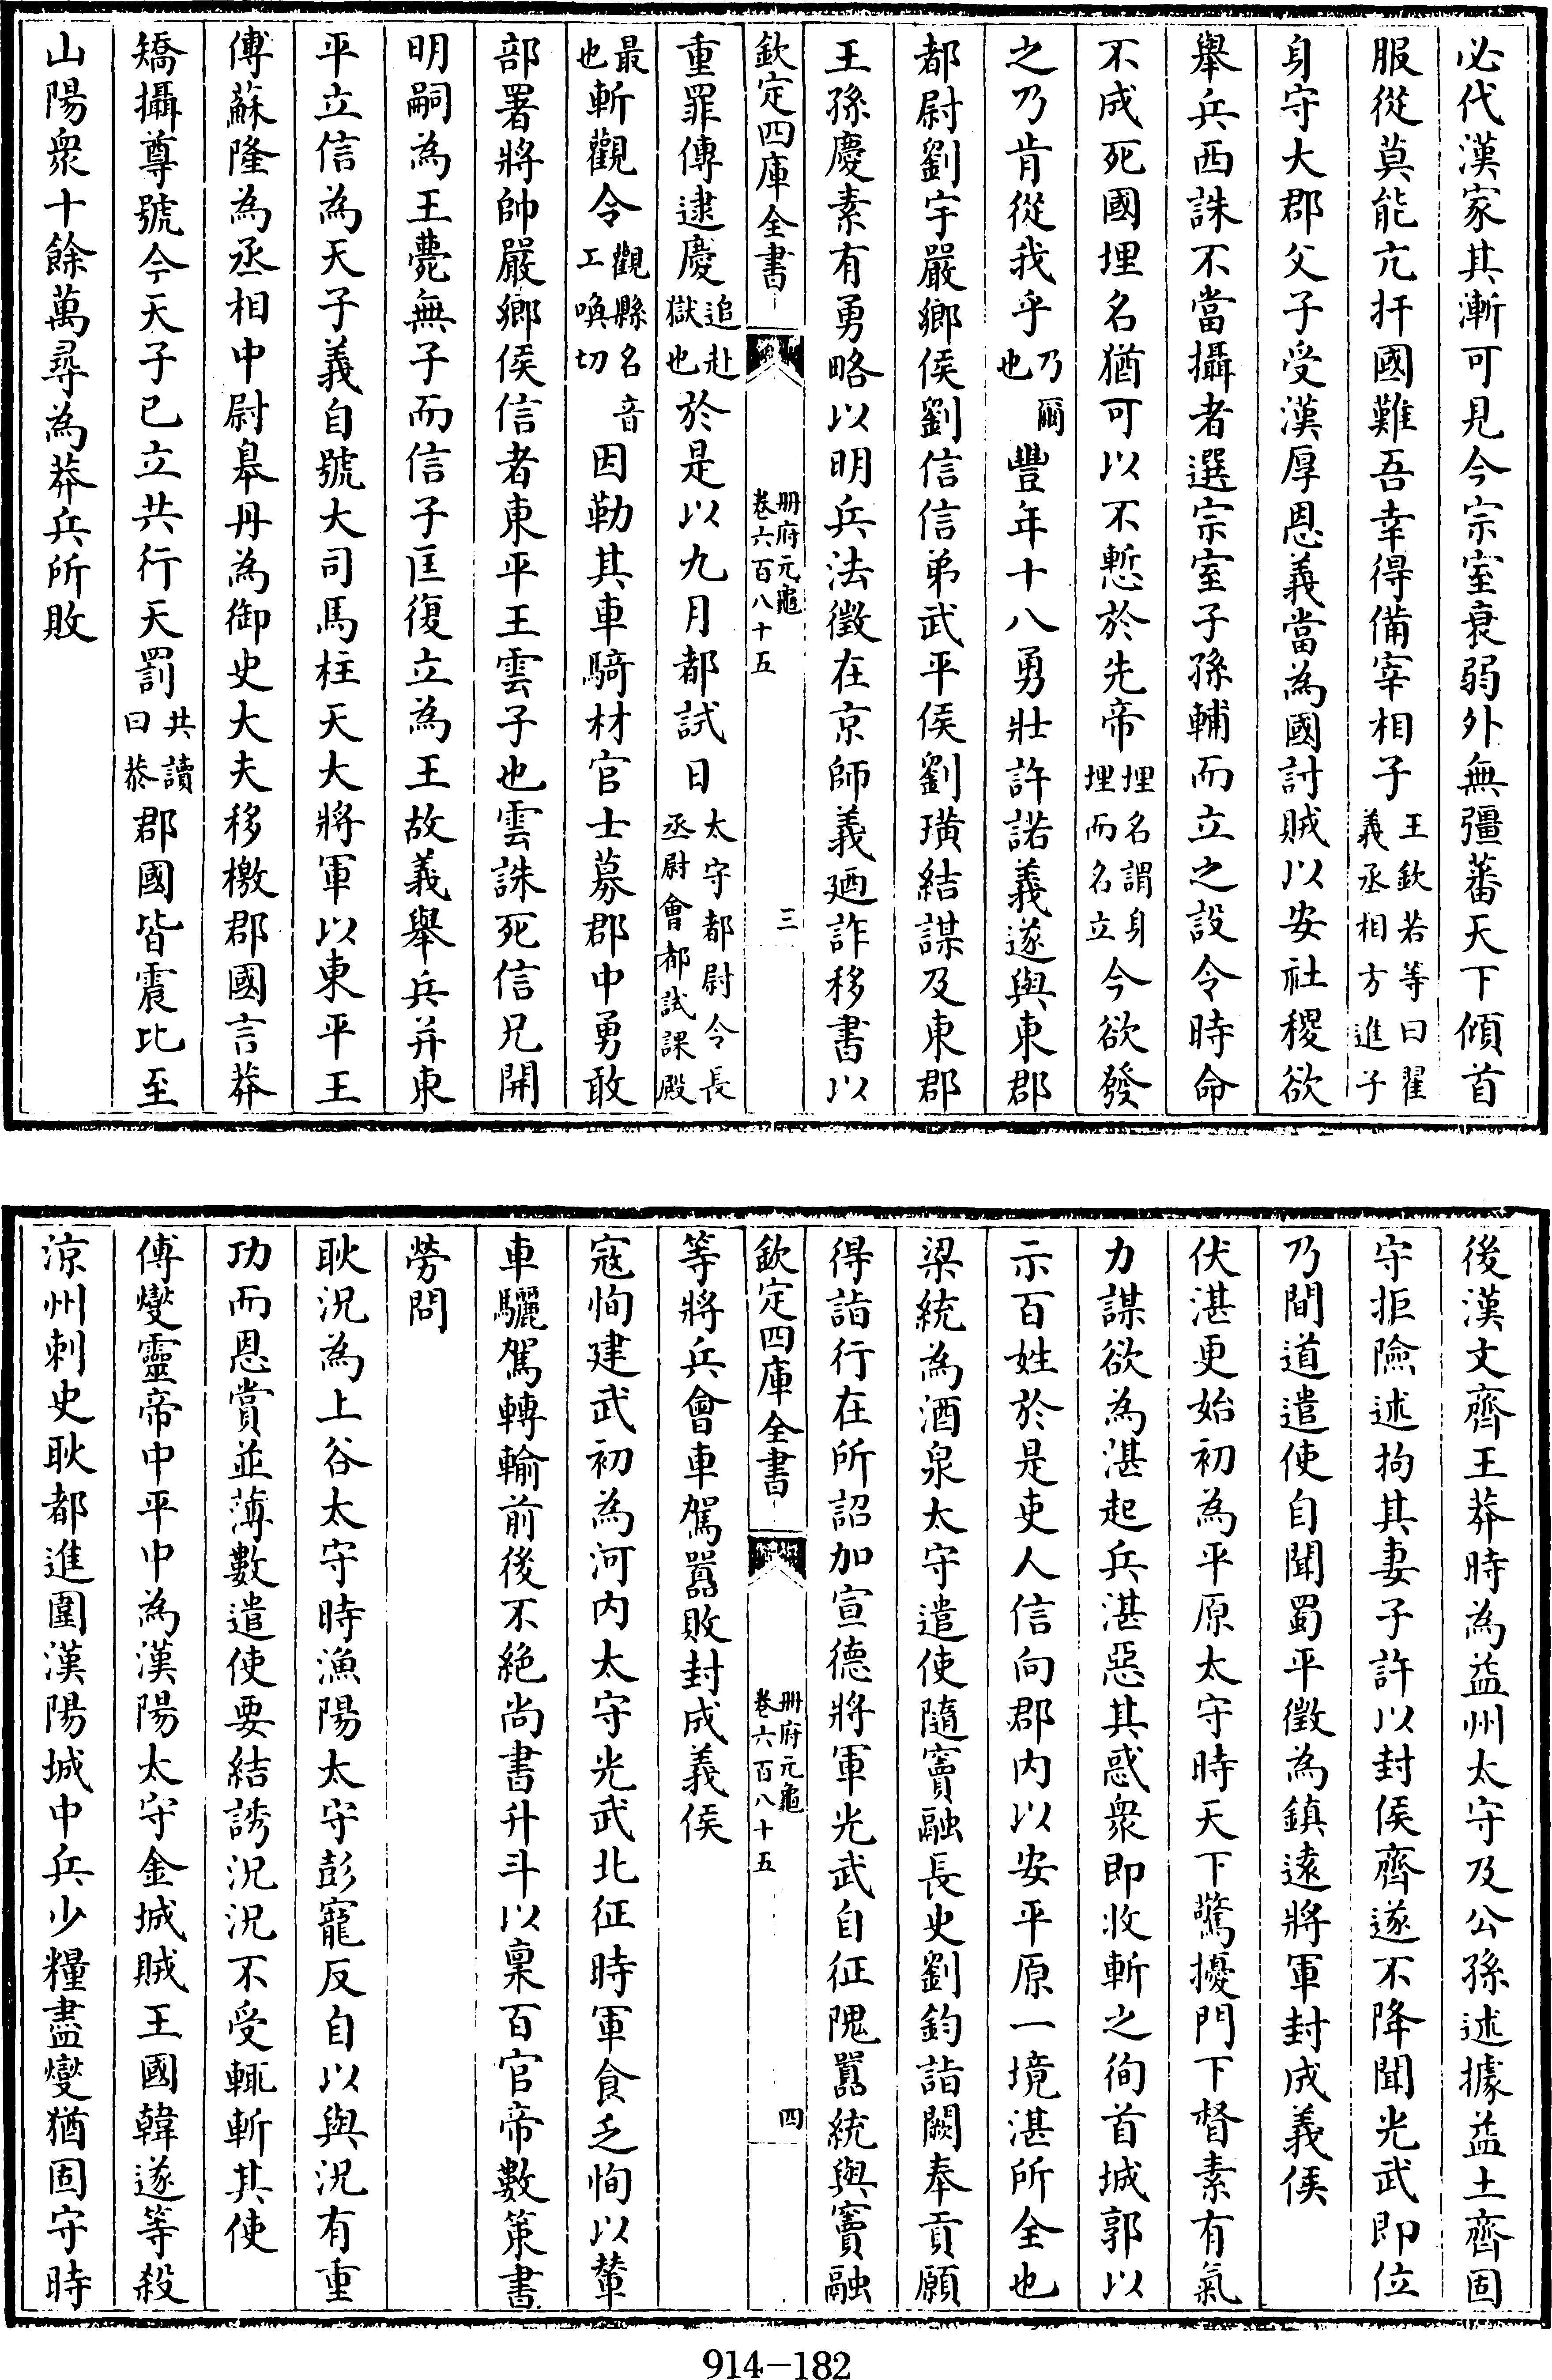 必代漢家其漸可見今宗室衰弱外無彊蕃天下傾首
服從莫能亢扞國難吾幸得備宰相子王欽若等曰翟義丞相方進子
身守大郡父子受漢厚恩義當為國討賊以安社稷欲
舉兵西誅不當攝者選宗室子孫輔而立之設令時命
不成死國埋名猶可以不慙於先帝埋名謂身埋而名立今欲發
之乃肯從我乎乃爾也豐年十八勇壯許諾義遂與東郡
都尉劉宇嚴鄉侯劉信信弟武平侯劉璜結謀及東郡
王孫慶素有勇略以明兵法徵在京師義廼詐移書以
欽定四庫全書 冊府元龜 卷六百八十五 三
重罪傳逮慶追赴獄也於是以九月都試日太守都尉令長丞尉會都試課殿
最也斬觀令觀縣名音工喚切因勒其車騎材官士募郡中勇敢
部署將帥嚴鄉侯信者東平王雲子也雲誅死信兄開
明嗣為王薨無子而信子匡復立為王故義舉兵并東
平立信為天子義自號大司馬柱天大將軍以東平王
傅蘇隆為丞相中尉皋丹為御史大夫移檄郡國言莽
矯攝尊號今天子已立共行天罰共讀曰恭郡國皆震比至
山陽衆十餘萬尋為莽兵所敗
後漢文齊王莽時為益州太守及公孫述據益土齊固
守拒險述拘其妻子許以封侯齊遂不降聞光武即位
乃間道遣使自聞蜀平徵為鎮遠將軍封成義侯
伏湛更始初為平原太守時天下驚擾門下督素有氣
力謀欲為湛起兵湛惡其惑衆即收斬之徇首城郭以
示百姓於是吏人信向郡內以安平原一境湛所全也
梁統為酒泉太守遣使隨竇融長史劉鈞詣闕奉貢願
得詣行在所詔加宣德將軍光武自征隗囂統與竇融
欽定四庫全書 冊府元龜 卷六百八十五 四
等將兵會車駕囂敗封成義侯
寇恂建武初為河內太守光武北征時軍食乏恂以輦
車驪駕轉輸前後不絕尚書升斗以稟百官帝數策書
勞問
耿況為上谷太守時漁陽太守彭寵反自以與況有重
功而恩賞並薄數遣使要結誘況況不受輒斬其使
傅燮靈帝中平中為漢陽太守金城賊王國韓遂等殺
涼州刺史耿都進圍漢陽城中兵少糧盡燮猶固守時
914-182